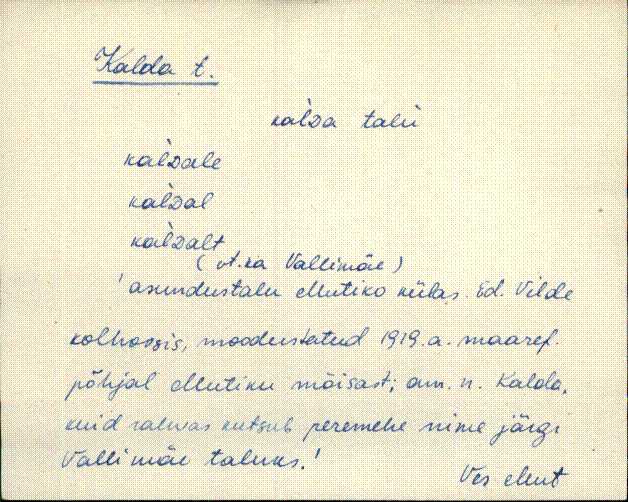 Kalda t.
kàlda talu
kàldale
kàldal
kàldalt
(vt. ka Vallimäe)
'asundustalu Mutiku külas. Ed. Vilde
kolhoosis, moodustatud 1919. a. maaref.
põhjal Mutiku mõisast; am. n. Kalda,
kuid rahvas kutsub peremehe nime järgi
Vallimäe taluks.'
Ves